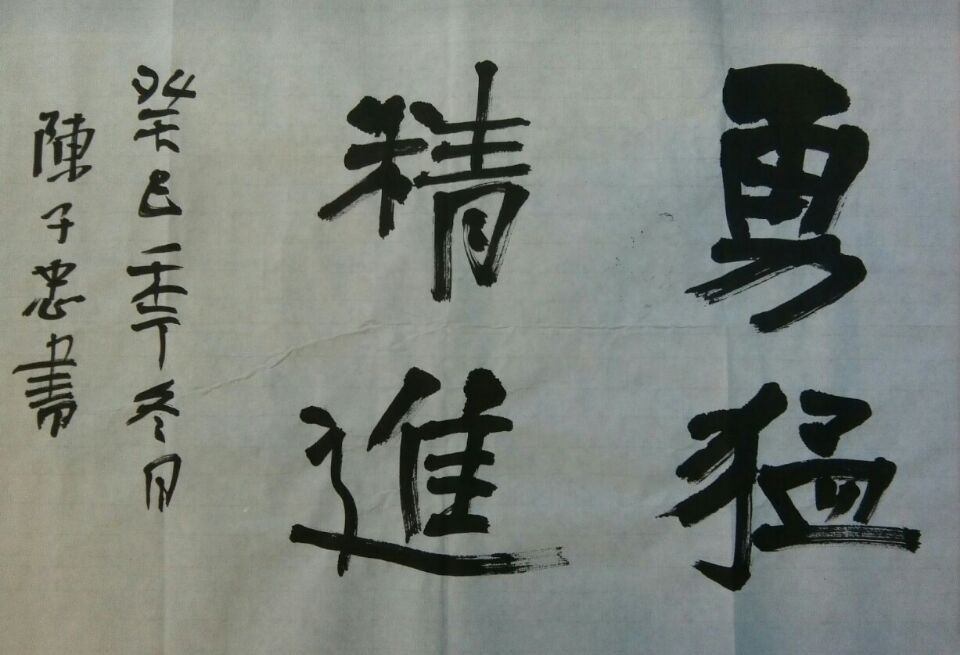 勇猛
精進
癸巳年冬月
陳子忠書